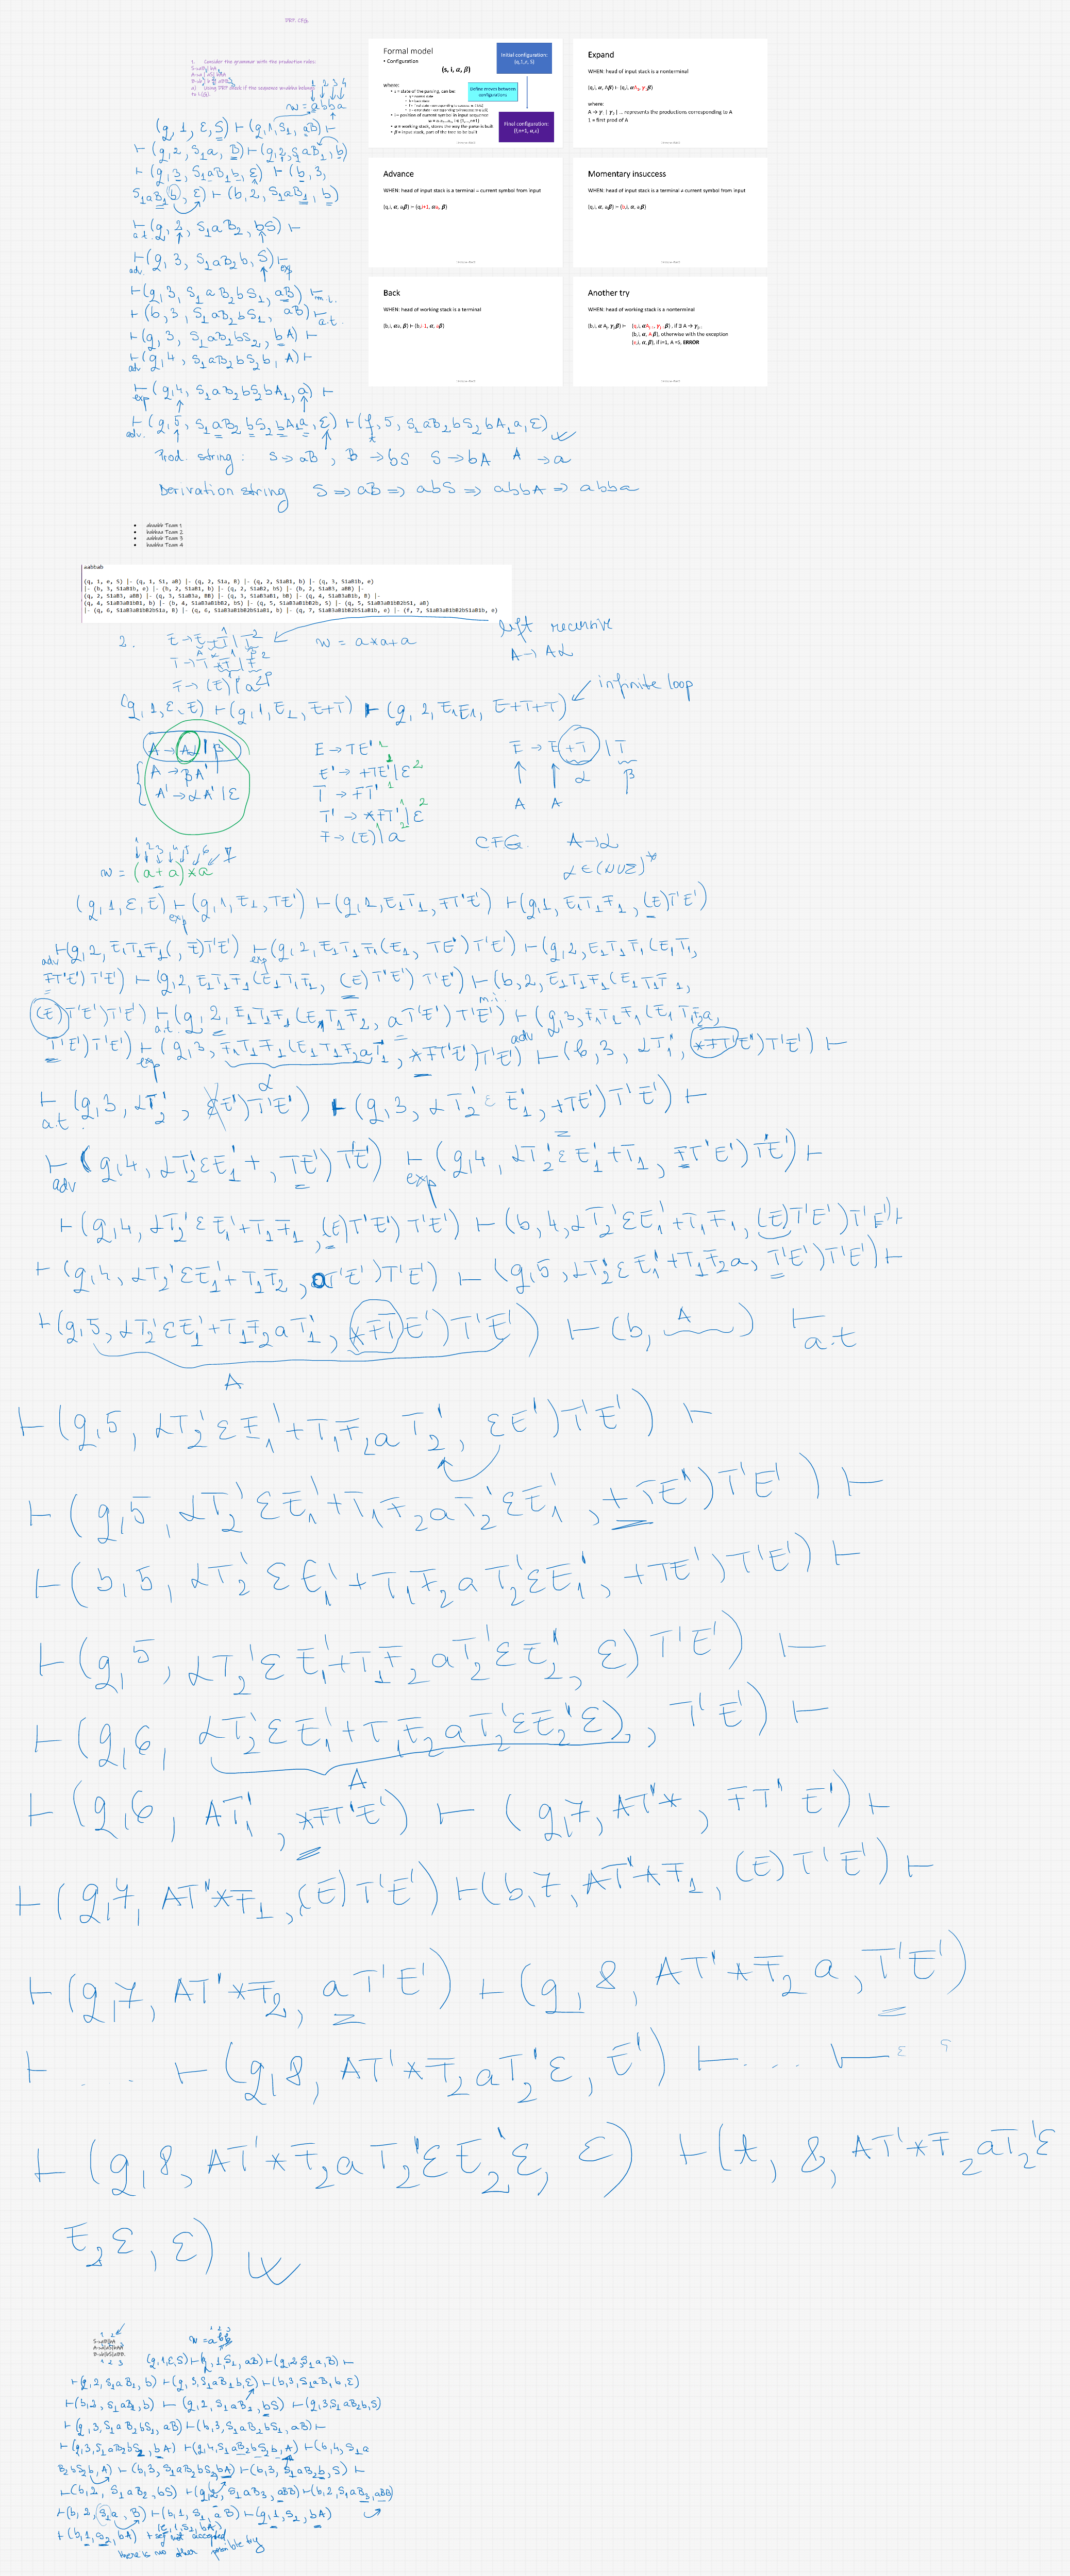 DRP. CFG.
1. Consider the grammar with the production rules:
S->aB | bA
A->a | aS | bAA
B->b | bS | aBB
a) Using DRP check if the sequence w=abba belongs to L(G).
1 2 3 4
w = abba
(q, 1, ε, S) ⊢ (q, 1, S₁, aB) ⊢
⊢ (q, 2, S₁a, B) ⊢ (q, 2, S₁aB₁, b)
⊢ (q, 3, S₁aB₁b, ε) ⊢ (b, 3,
S₁aB₁b, ε) ⊢ (b, 2, S₁aB₁, b)
⊢ a.t. (q, 2, S₁aB₂, bS) ⊢
⊢ adv. (q, 3, S₁aB₂b, S) ⊢ exp
⊢ (q, 3, S₁aB₂bS₁, aB) ⊢ m.i.
⊢ (b, 3, S₁aB₂bS₁, aB) ⊢ a.t.
⊢ (q, 3, S₁aB₂bS₂, bA) ⊢
⊢ adv (q, 4, S₁aB₂bS₂b, A) ⊢
⊢ exp (q, 4, S₁aB₂bS₂bA₁, a) ⊢
⊢ adv. (q, 5, S₁aB₂bS₂bA₁a, ε) ⊢ (f, 5, S₁aB₂bS₂bA₁a, ε)
Prod. string: S → aB, B → bS S → bA A → a
Derivation string S ⇒ aB ⇒ abS ⇒ abbA ⇒ abba
Formal model
• Configuration
(s, i, α, β)
where:
• s = state of the parsing, can be:
• i = position of current symbol in input sequence
• α = working stack, stores the way the parse is built
• β = input stack, part of the tree to be built
Initial configuration:
(q,1,ε,S)
Define moves between configurations
Final configuration:
(f,n+1, α,ε)
Expand
WHEN: head of input stack is a nonterminal
(q,i, α, Aβ) ⊢ (q,i, αA₁, γ₁β)
where:
A → γ₁ | γ₂ | ... represents the productions corresponding to A
1 = first prod of A
Advance
WHEN: head of input stack is a terminal = current symbol from input
(q,i, α, aᵢβ) ⊢ (q,i+1, αaᵢ, β)
Momentary insuccess
WHEN: head of input stack is a terminal ≠ current symbol from input
(q,i, α, aᵢβ) ⊢ (b,i, α, aᵢβ)
Back
WHEN: head of working stack is a terminal
(b,i, αa, β) ⊢ (b,i-1, α, aβ)
Another try
WHEN: head of working stack is a nonterminal
(b,i, αAⱼ, γⱼβ) ⊢ (q,i, αAⱼ₊₁, γⱼ₊₁β), if ∃ A → γⱼ₊₁
(b,i, α, Aβ), otherwise with the exception
(e,i, α, β), if i=1, A =S, ERROR
• abaabb Team 1
• babbaa Team 2
• aabbab Team 3
• baabba Team 4
aabbab
(q, 1, e, S) |- (q, 1, S1, aB) |- (q, 2, S1a, B) |- (q, 2, S1aB1, b) |- (q, 3, S1aB1b, e)
|- (b, 3, S1aB1b, e) |- (b, 2, S1aB1, b) |- (q, 2, S1aB2, bS) |- (b, 2, S1aB3, aBB) |-
(q, 2, S1aB3, aBB) |- (q, 3, S1aB3a, BB) |- (q, 3, S1aB3aB1, bB) |- (q, 4, S1aB3aB1b, B) |-
(q, 4, S1aB3aB1bB1, b) |- (b, 4, S1aB3aB1bB2, bS) |- (q, 5, S1aB3aB1bB2b, S) |- (q, 5, S1aB3aB1bB2bS1, aB)
|- (q, 6, S1aB3aB1bB2bS1a, B) |- (q, 6, S1aB3aB1bB2bS1aB1, b) |- (q, 7, S1aB3aB1bB2bS1aB1b, e) |- (f, 7, S1aB3aB1bB2bS1aB1b, e)
2. E → E+T | T w = a*a+a left recursive
T → T*F | F A → Aα
F → (E) | a
(q, 1, ε, E) ⊢ (q, 1, E₁, E+T) ⊢ (q, 2, E₁E₁, E+T+T) infinite loop
A → Aα | β
A → βA'
A' → αA' | ε
E → TE'
E' → +TE' | ε
T → FT'
T' → *FT' | ε
F → (E) | a
E → E +T | T
A A α β
CFG. A → α
α ∈ (N∪Σ)*
1 2 3 4 5 6 7
w = (a+a)*a
(q, 1, ε, E) ⊢ exp (q, 1, E₁, TE') ⊢ (q, 1, E₁T₁, FT'E') ⊢ (q, 1, E₁T₁F₁, (E)T'E')
⊢ adv (q, 2, E₁T₁F₁(, E)T'E') ⊢ exp (q, 2, E₁T₁F₁(E₁, TE')T'E') ⊢ (q, 2, E₁T₁F₁(E₁T₁,
FT'E')T'E') ⊢ (q, 2, E₁T₁F₁(E₁T₁F₁, (E)T'E')T'E') ⊢ m.i. (b, 2, E₁T₁F₁(E₁T₁F₁,
(E)T'E')T'E') ⊢ a.t. (q, 2, E₁T₁F₁(E₁T₁F₂, aT'E')T'E') ⊢ adv (q, 3, E₁T₁F₁(E₁T₁F₂a,
T'E')T'E') ⊢ exp (q, 3, E₁T₁F₁(E₁T₁F₂aT₁', *FT'E')T'E') ⊢ (b, 3, αT₁', *FT'E')T'E') ⊢
α
⊢ a.t. (q, 3, αT₂', εE')T'E') ⊢ (q, 3, αT₂'εE₁', +TE')T'E') ⊢
⊢ adv (q, 4, αT₂'εE₁'+, TE')T'E') ⊢ exp (q, 4, αT₂'εE₁'+T₁, FT'E')T'E') ⊢
⊢ (q, 4, αT₂'εE₁'+T₁F₁, (E)T'E')T'E') ⊢ (b, 4, αT₂'εE₁'+T₁F₁, (E)T'E')T'E') ⊢
⊢ (q, 4, αT₂'εE₁'+T₁F₂, aT'E')T'E') ⊢ (q, 5, αT₂'εE₁'+T₁F₂a, T'E')T'E') ⊢
⊢ (q, 5, αT₂'εE₁'+T₁F₂aT₁', *FT'E')T'E') ⊢ (b, A) ⊢ a.t
A
⊢ (q, 5, αT₂'εE₁'+T₁F₂aT₂', εE')T'E') ⊢
⊢ (q, 5, αT₂'εE₁'+T₁F₂aT₂'εE₁', +TE')T'E') ⊢
⊢ (b, 5, αT₂'εE₁'+T₁F₂aT₂'εE₁', +TE')T'E') ⊢
⊢ (q, 5, αT₂'εE₁'+T₁F₂aT₂'εE₂', ε)T'E') ⊢
⊢ (q, 6, αT₂'εE₁'+T₁F₂aT₂'εE₂'ε), T'E') ⊢
A
⊢ (q, 6, AT₁', *FT'E') ⊢ (q, 7, AT'*, FT'E') ⊢
⊢ (q, 7, AT'*F₁, (E)T'E') ⊢ (b, 7, AT'*F₁, (E)T'E') ⊢
⊢ (q, 7, AT'*F₂, aT'E') ⊢ (q, 8, AT'*F₂a, T'E')
⊢ ... ⊢ (q, 8, AT'*F₂aT₂'ε, E') ⊢ ... ⊢
⊢ (q, 8, AT'*F₂aT₂'εE₂'ε, ε) ⊢ (f, 8, AT'*F₂aT₂'ε
E₂ε, ε)
S->aB|bA
A->a|aS|bAA
B->b|bS|aBB
1 2 3
w = abb
(q, 1, ε, S) ⊢ (q, 1, S₁, aB) ⊢ (q, 2, S₁a, B) ⊢
⊢ (q, 2, S₁aB₁, b) ⊢ (q, 3, S₁aB₁b, ε) ⊢ (b, 3, S₁aB₁b, ε)
⊢ (b, 2, S₁aB₁, b) ⊢ (q, 2, S₁aB₂, bS) ⊢ (q, 3, S₁aB₂b, S)
⊢ (q, 3, S₁aB₂bS₁, aB) ⊢ (b, 3, S₁aB₂bS₁, aB) ⊢
⊢ (q, 3, S₁aB₂bS₂, bA) ⊢ (q, 4, S₁aB₂bS₂b, A) ⊢ (b, 4, S₁a
B₂bS₂b, A) ⊢ (b, 3, S₁aB₂bS₂, bA) ⊢ (b, 3, S₁aB₂b, S) ⊢
⊢ (b, 2, S₁aB₂, bS) ⊢ (q, 2, S₁aB₃, aBB) ⊢ (b, 2, S₁aB₃, aBB)
⊢ (b, 2, S₁a, B) ⊢ (b, 1, S₁, aB) ⊢ (q, 1, S₂, bA)
⊢ (b, 1, S₂, bA) ⊢ (e, 1, S₂, bA)
seq not accepted
there is no other possible try